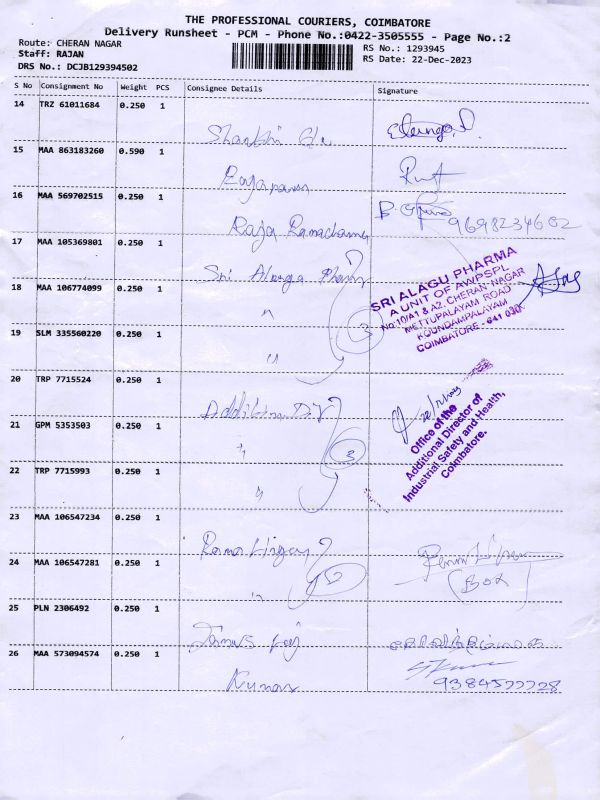 THE PROFESSIONAL COURIERS, COIMBATORE
Delivery Runsheet - PCM - Phone No.:0422-3505555 - Page No.:2
Route: CHERAN NAGAR
RS No.: 1293945
Staff: RAJAN
RS Date: 22-Dec-2023
DRS No.: DCJB129394502
S No Consignment No Weight PCS Consignee Details Signature
14 TRZ 61011684 0.250 1
15 MAA 863183260 0.590 1
16 MAA 569702515 0.250 1
9698234602
Raja
17 MAA 105369801 0.250 1
Sri Alaga Pharm
SRI ALAGU PHARMA
A UNIT OF AWPSPL
No:10/A1 & A2, CHERAN NAGAR
METTUPALAYAM ROAD
KOUNDAMPALAYAM
COIMBATORE - 641 030
18 MAA 106774099 0.250 1
"
3
19 SLM 335560220 0.250 1
"
20 TRP 7715524 0.250 1
21 GPM 5353503 0.250 1
"
3
Office of the
Additional Director of
Industrial Safety and Health,
Coimbatore.
22 TRP 7715993 0.250 1
"
23 MAA 106547234 0.250 1
24 MAA 106547281 0.250 1
"
2
(Box)
25 PLN 2306492 0.250 1
26 MAA 573094574 0.250 1
Kumar
9384577728